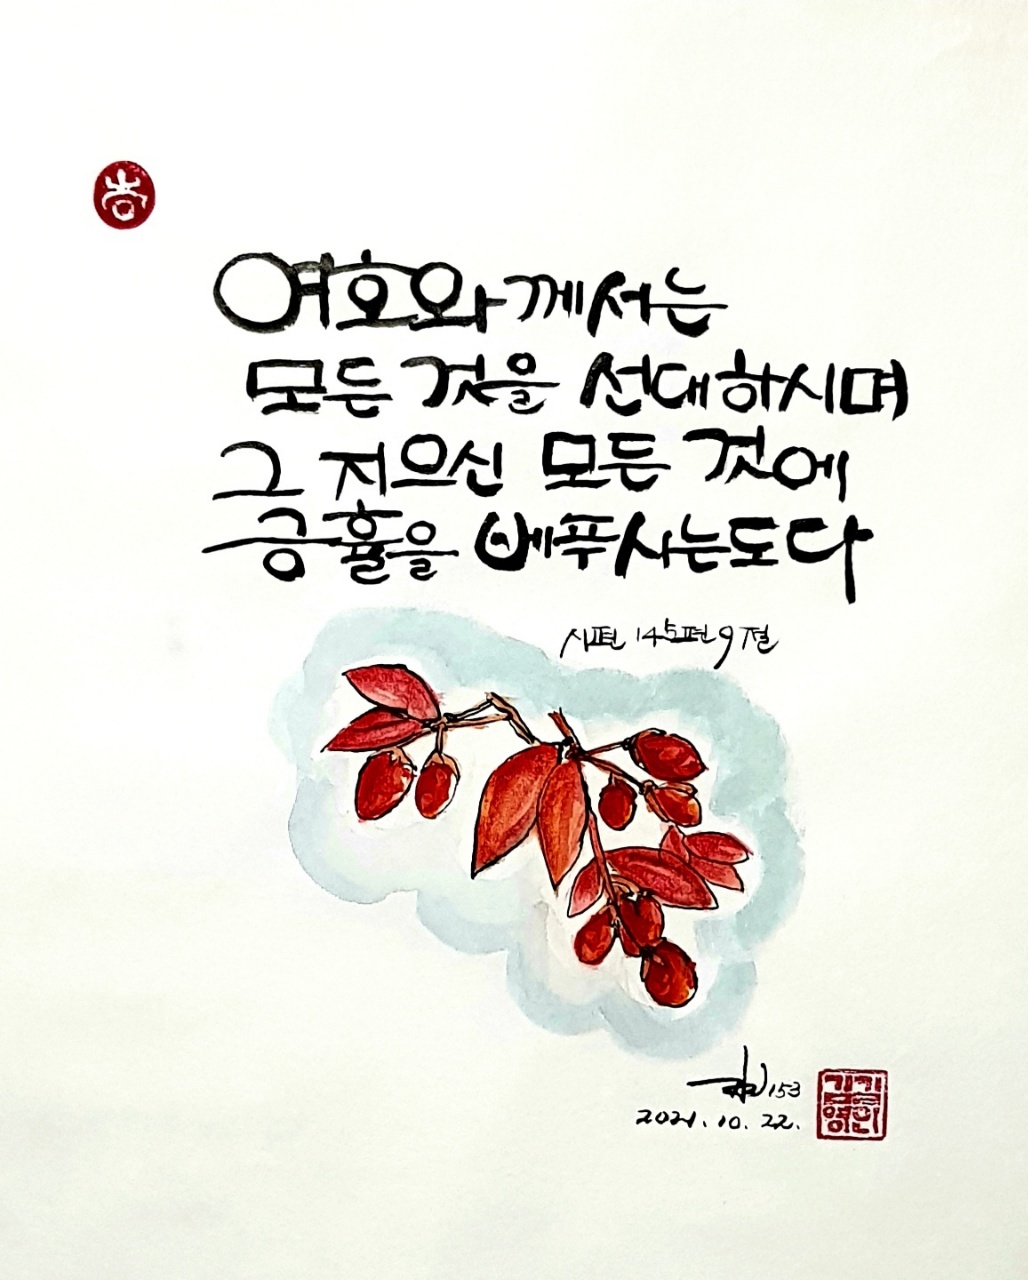 여호와께서는
모든 것을 선대하시며
그 지으신 모든 것에
긍휼을 베푸시는도다
시편 145편 9절
153
2021.10.22.